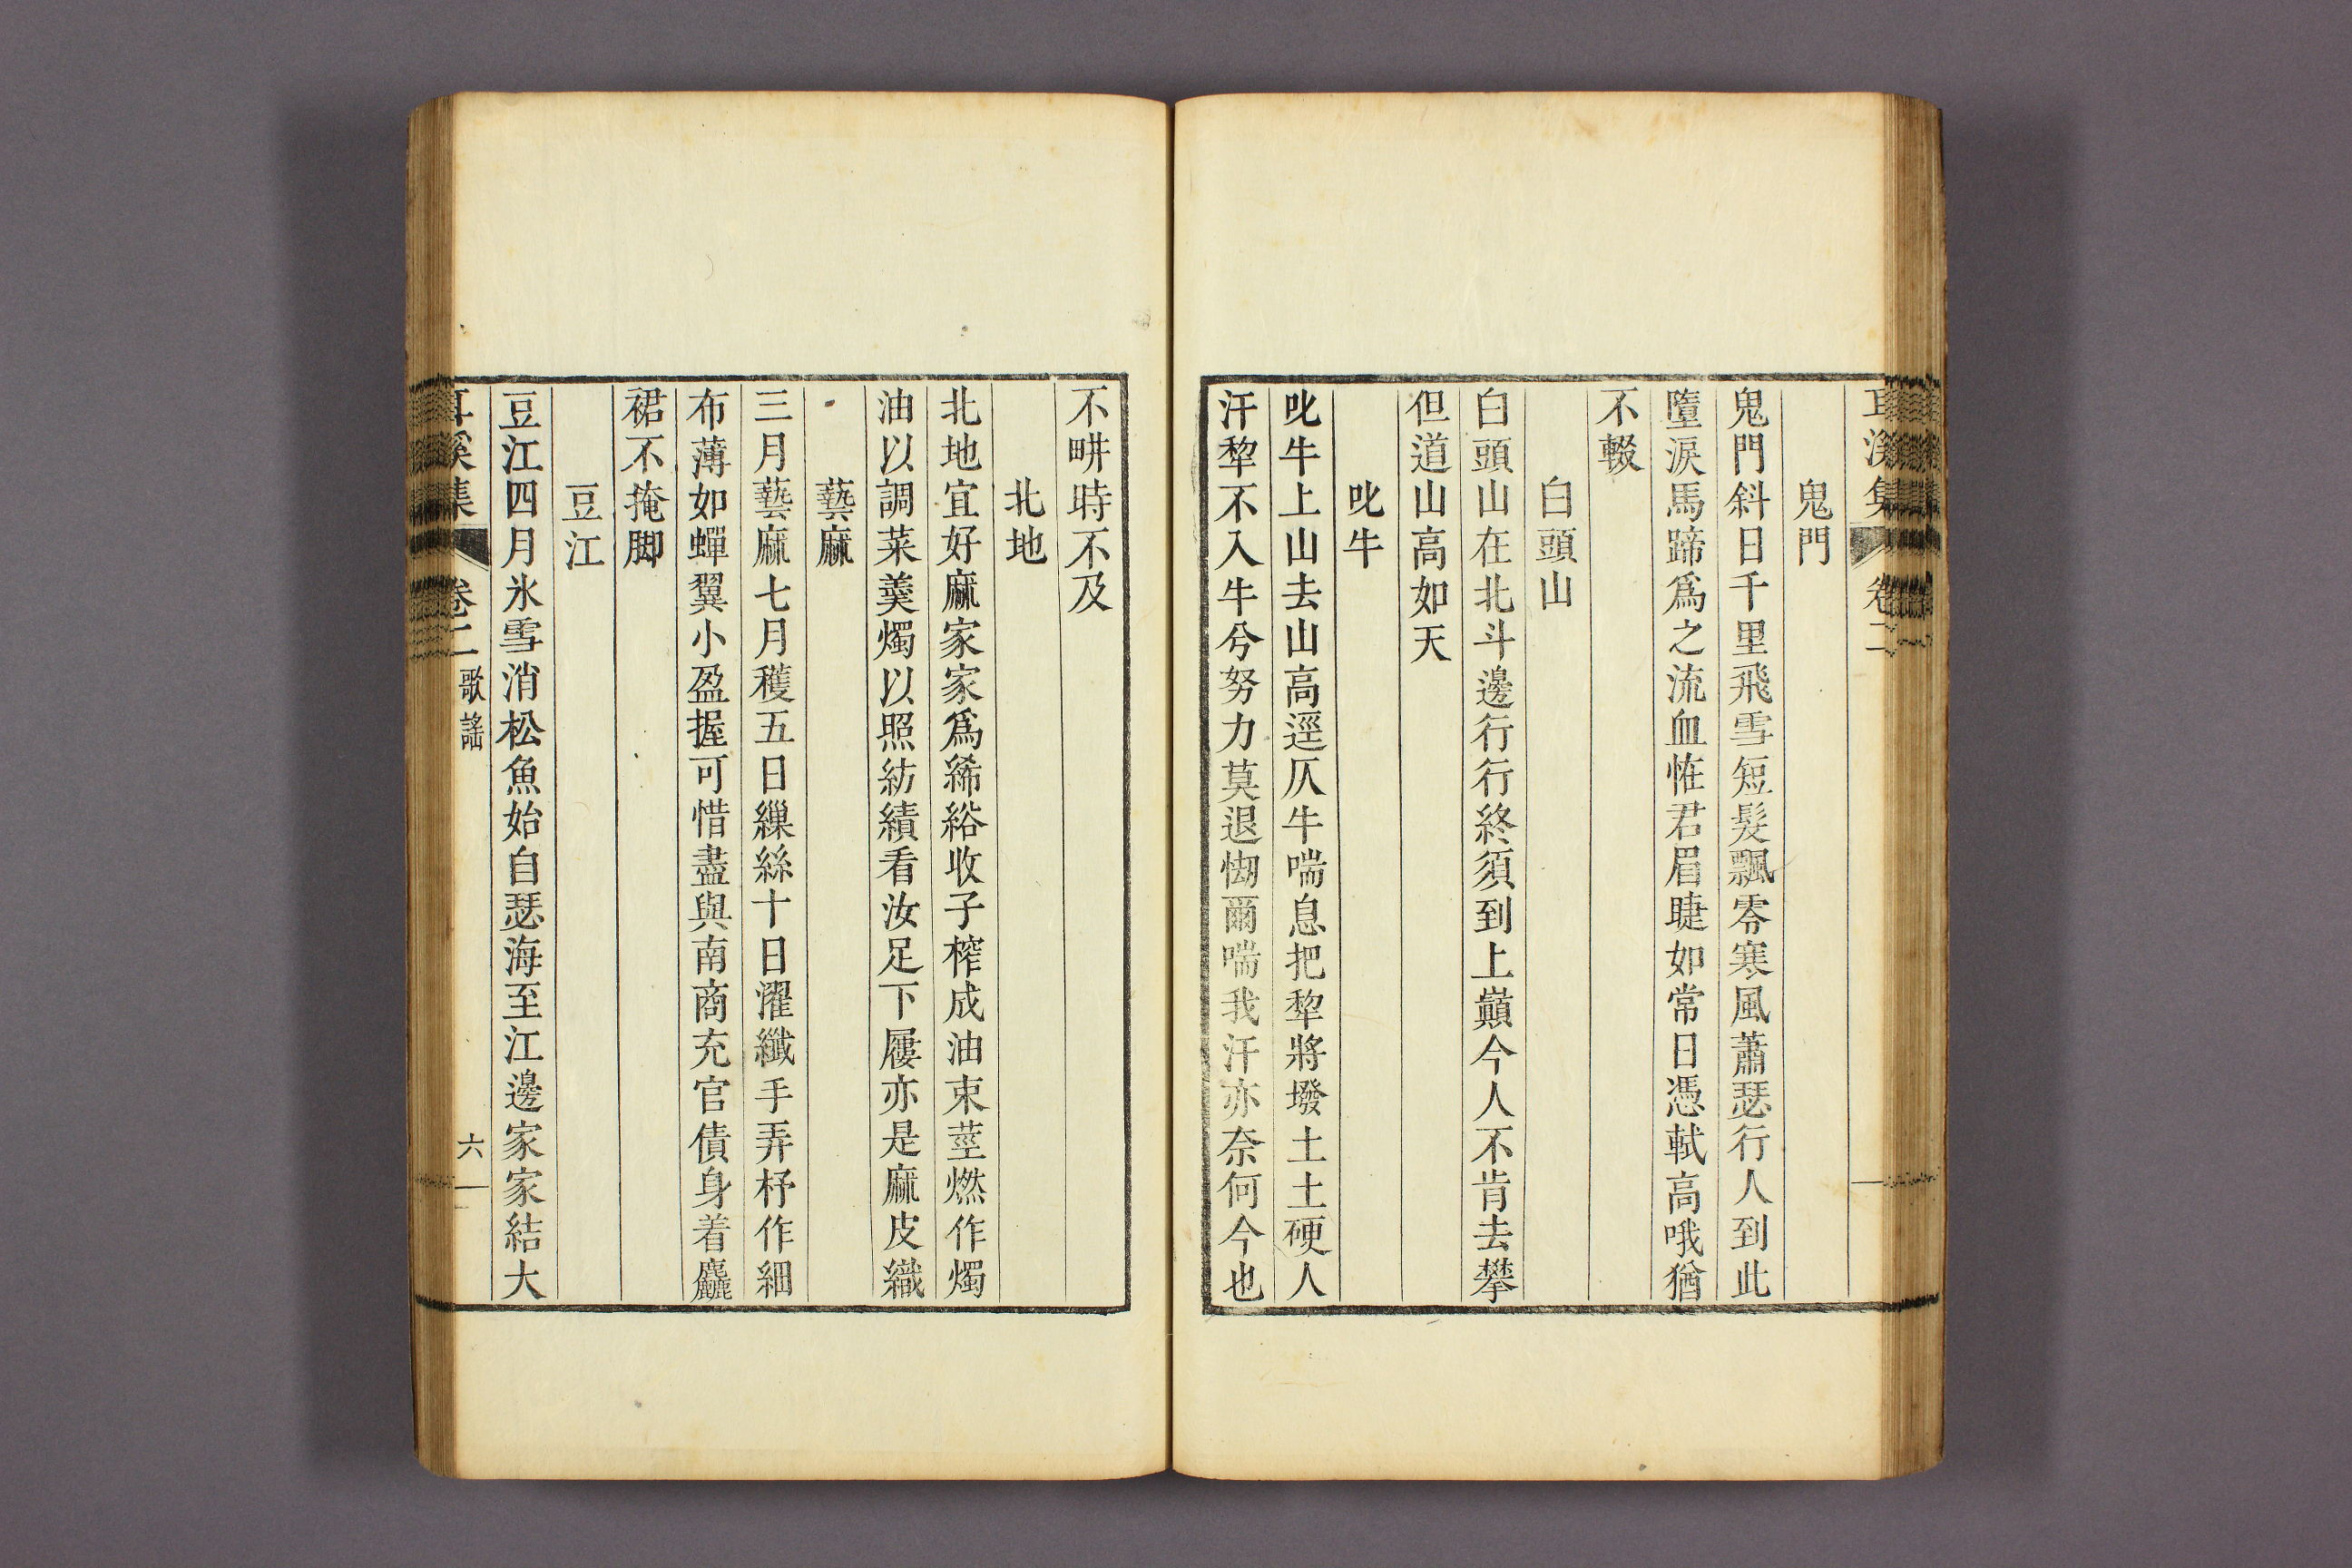 耳溪集 卷二
鬼門
鬼門斜日千里飛雪短髮飄零寒風蕭瑟行人到此
墮淚馬蹄爲之流血惟君眉睫如常日憑軾高哦猶
不輟
白頭山
白頭山在北斗邊行行終須到上巔今人不肯去攀
但道山高如天
叱牛
叱牛上山去山高逕仄牛喘息把犂將墢土土硬人
汗犂不入牛兮努力莫退㥘爾喘我汗亦奈何今也
不畊時不及
北地
北地宜好麻家家爲絺綌收子榨成油束莖燃作燭
油以調菜羹燭以照紡績看汝足下屨亦是麻皮織
藝麻
三月藝麻七月穫五日繅絲十日濯纖手弄杼作細
布薄如蟬翼小盈握可惜盡與南商充官債身着麤
裙不掩脚
豆江
豆江四月氷雪消松魚始自瑟海至江邊家家結大
耳溪集 卷二 歌謠 六